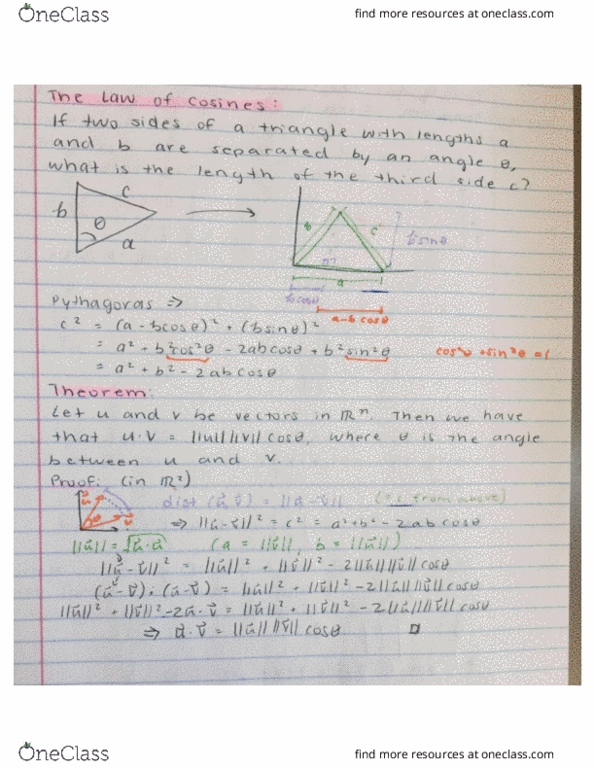 OneClass
find more resources at oneclass.com
The Law of Cosines:
If two sides of a triangle with lengths a
and b are separated by an angle θ,
what is the length of the third side c?
b c θ a
b c bsinθ
a
bcosθ
a-bcosθ
Pythagoras ⇒
c² = (a-bcosθ)² + (bsinθ)²
= a² + b²cos²θ - 2abcosθ + b²sin²θ cos²θ + sin²θ = 1
= a² + b² - 2abcosθ
Theorem:
Let u and v be vectors in ℝⁿ. Then we have
that u·v = ||u|| ||v|| cosθ, where θ is the angle
between u and v.
Proof: (in ℝ²)
dist (u⃗, v⃗) = ||u⃗ - v⃗|| (= c from above)
⇒ ||u⃗ - v⃗||² = c² = a² + b² - 2abcosθ
||u⃗|| = √u⃗·u⃗ (a = ||v⃗||, b = ||u⃗||)
||u⃗ - v⃗||² = ||u⃗||² + ||v⃗||² - 2||u⃗|| ||v⃗|| cosθ
(u⃗ - v⃗)·(u⃗ - v⃗) = ||u⃗||² + ||v⃗||² - 2||u⃗|| ||v⃗|| cosθ
||u⃗||² + ||v⃗||² - 2u⃗·v⃗ = ||u⃗||² + ||v⃗||² - 2||u⃗|| ||v⃗|| cosθ
⇒ u⃗·v⃗ = ||u⃗|| ||v⃗|| cosθ □
OneClass
find more resources at oneclass.com